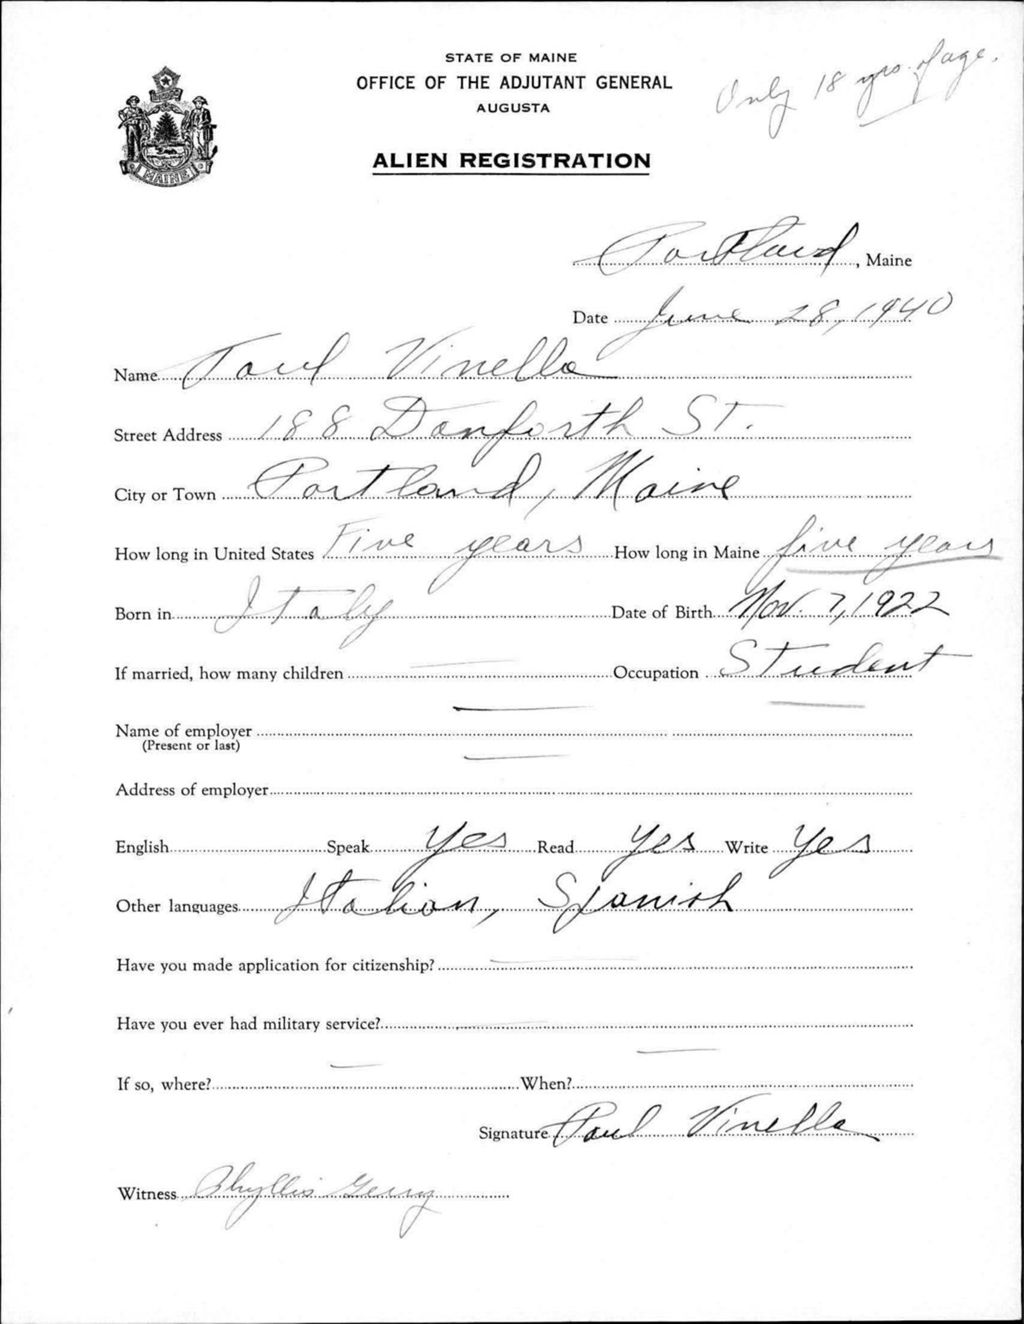 STATE OF MAINE
OFFICE OF THE ADJUTANT GENERAL
AUGUSTA
Only 18 yrs. of age.
ALIEN REGISTRATION
MAINE
Portland, Maine
Date June 28, 1940
Name Paul Vinella
Street Address 188 Danforth St.
City or Town Portland, Maine
How long in United States Five years How long in Maine five years
Born in Italy Date of Birth Nov. 7, 1922
If married, how many children — Occupation Student
Name of employer —
(Present or last)
Address of employer —
English Speak Yes Read Yes Write Yes
Other languages Italian, Spanish
Have you made application for citizenship? —
Have you ever had military service? —
If so, where? — When? —
Signature Paul Vinella
Witness Phyllis Gerry